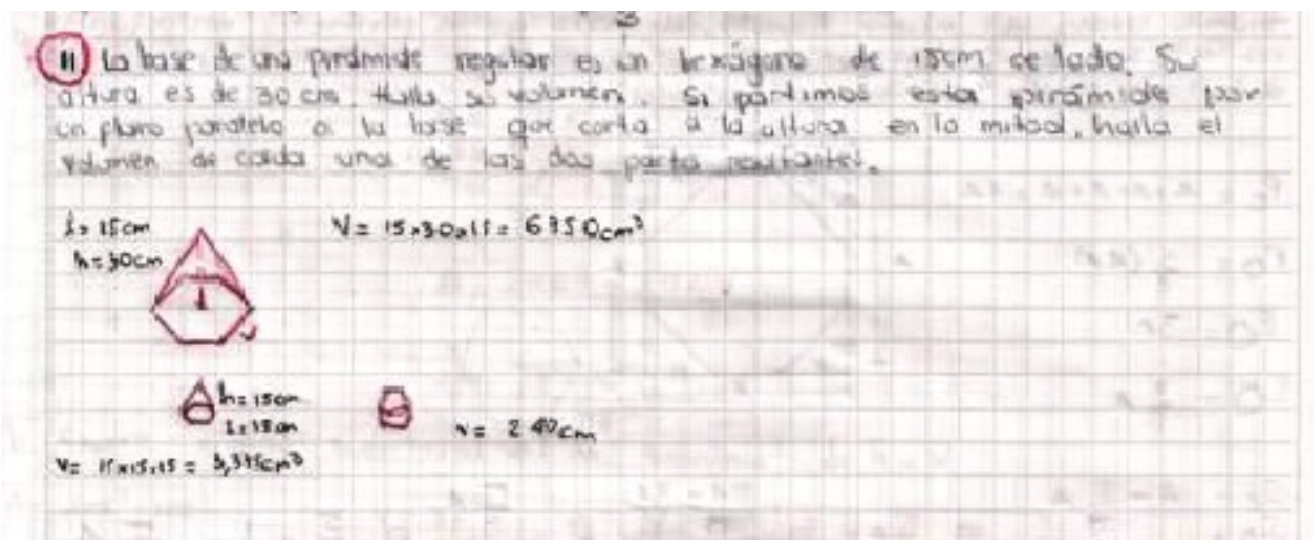 11) La base de una pirámide regular es un hexágono de 15cm de lado. Su
altura es de 30 cm. Halla su volumen. Si partimos esta pirámide por
un plano paralelo a la base que corta a la altura en la mitad, halla el
volumen de cada una de las dos partes resultantes.
l= 15cm
V= 15x30x15= 6750cm³
h=30cm
h=15cm
l=15cm
V= 240cm
V= 15x15x15 = 3,375cm³